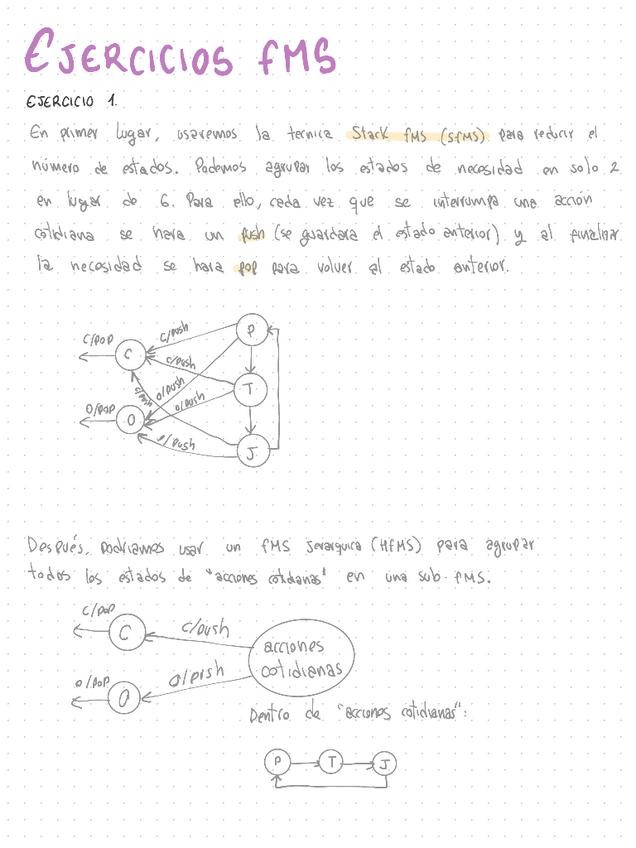 EJERCICIOS FMS
EJERCICIO 1.
En primer lugar, usaremos la tecnica Stack FMS (SFMS) para reducir el
número de estados. Podemos agrupar los estados de necesidad en solo 2
en lugar de 6. Para ello, cada vez que se interrumpa una acción
cotidiana se hara un push (se guardara el estado anterior) y al finalizar
la necesidad se hara pop para volver al estado anterior.
C/POP
C
C/push
P
C/push
C/push
O/push
T
O/push
O/POP
O
O/push
J
Después, podriamos usar un FMS Jerarquica (HFMS) para agrupar
todos los estados de "acciones cotidianas" en una sub-FMS.
C/POP
C
C/push
acciones
cotidianas
O/POP
O
O/push
Dentro de "acciones cotidianas":
P
T
J